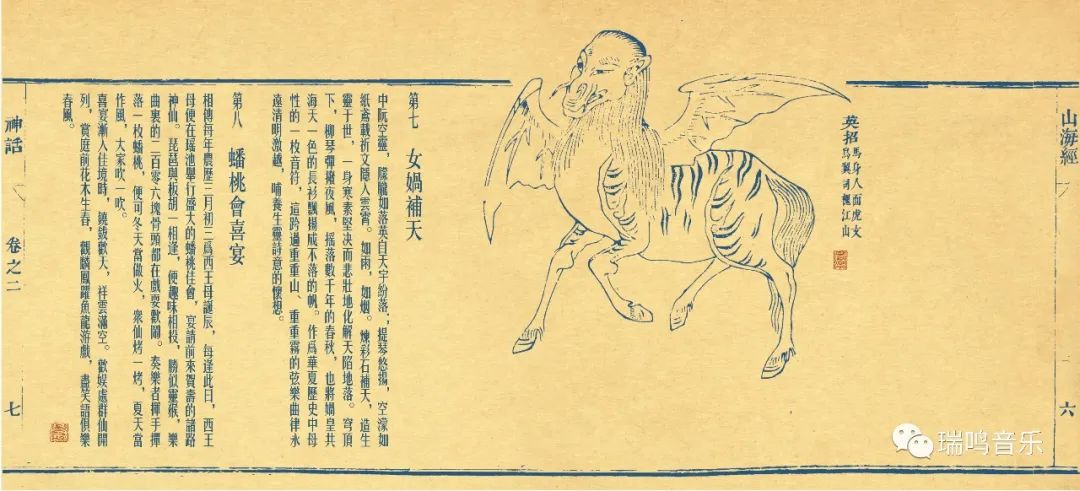 山海經
六
英招 馬身人面虎文
鳥翼司禋江山
第七 女媧補天
中阮空靈，朦朧如落英自天宇紛落；提琴悠揚，空濛如
紙鳶載祈文隱入雲霄。如雨，如烟。煉彩石補天，造生
靈于世，一身寒素堅決而悲壯地化解天陷地落。穹頂
下，柳琴彈擁夜風，摇落數千年的春秋，也將媧皇共
海天一色的長衫飄揚成不落的帆。作爲華夏歷史中母
性的一枚音符，這跨過重重山、重重霧的弦樂曲律永
遠清明激越，哺養生靈詩意的懷想。
第八 蟠桃會喜宴
相傳每年農歷三月初三爲西王母誕辰，每逢此日，西王
母便在瑶池舉行盛大的蟠桃佳會，宴請前來賀壽的諸路
神仙。琵琶與板胡一相逢，便趣味相投，勝似靈猴，樂
曲裏的二百零六塊骨頭都在戲耍歡鬧。奏樂者揮手擇
落一枚蟠桃，便可冬天當做火，衆仙烤一烤，夏天當
作風，大家吹一吹。
喜宴漸入佳境時，鐃鈸歡天，祥雲滿空。歡娱處群仙開
列，賞庭前花木生春，觀麟鳳躍魚龍游戲，盡笑語俱樂
春風。
神話
卷之二
七
瑞鸣音乐